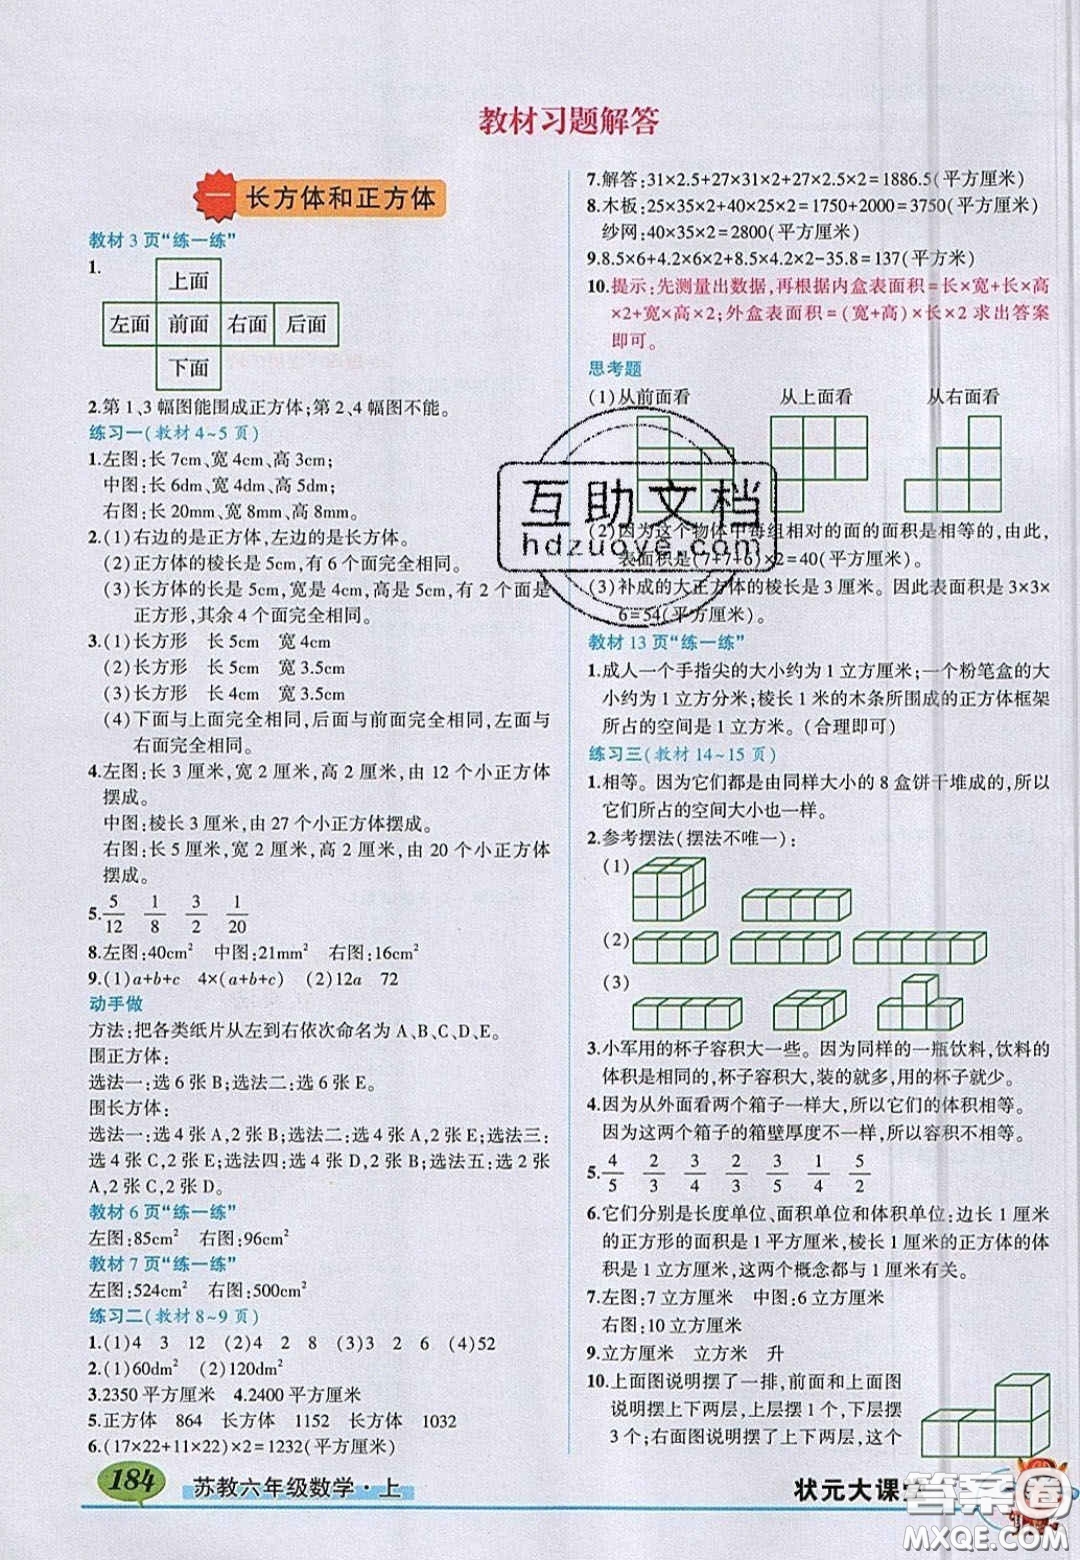 教材习题解答
一 长方体和正方体
教材3页“练一练”
1.
上面
左面 前面 右面 后面
下面
2.第1、3幅图能围成正方体;第2、4幅图不能。
练习一(教材4~5页)
1.左图:长7cm、宽4cm、高3cm;
中图:长6dm、宽3dm、高3dm;
右图:长20mm、宽8mm、高8mm。
2.(1)右边的是正方体,左边的是长方体。
(2)正方体的棱长是5cm,有6个面完全相同。
(3)长方体的长是5cm,宽是4cm,高是4cm,有2个面是
正方形,其余4个面完全相同。
3.(1)长方形 长5cm 宽4cm
(2)长方形 长5cm 宽3.5cm
(3)长方形 长4cm 宽3.5cm
(4)下面与上面完全相同,后面与前面完全相同,左面与
右面完全相同。
4.左图:长3厘米,宽2厘米,高2厘米,由12个小正方体
摆成。
中图:棱长3厘米,由27个小正方体摆成。
右图:长5厘米,宽2厘米,高2厘米,由20个小正方体
摆成。
5. 5/12 1/8 3/2 1/20
8.左图:40cm² 中图:21mm² 右图:16cm²
9.(1)a+b+c 4×(a+b+c) (2)12a 72
动手做
方法:把各类纸片从左到右依次命名为A、B、C、D、E。
围正方体:
选法一:选6张B;选法二:选6张E。
围长方体:
选法一:选4张A,2张B;选法二:选4张A,2张E;选法三:
选4张C,2张E;选法四:选4张D,2张B;选法五:选2张
A,2张C,2张D。
教材6页“练一练”
左图:85cm² 右图:96cm²
教材7页“练一练”
左图:524cm² 右图:500cm²
练习二(教材8~9页)
1.(1)4 3 12 (2)4 2 8 (3)3 2 6 (4)52
2.(1)60dm² (2)120dm²
3.2350平方厘米 4.2400平方厘米
5.正方体 864 长方体 1152 长方体 1032
6.(17×22+11×22)×2=1232(平方厘米)
7.解答:31×2.5+27×31×2+27×2.5×2=1886.5(平方厘米)
8.木板:25×35×2+40×25×2=1750+2000=3750(平方厘米)
纱网:40×35×2=2800(平方厘米)
9.8.5×6+4.2×6×2+8.5×4.2×2-35.8=137(平方米)
10.提示:先测量出数据,再根据内盒表面积=长×宽+长×高
×2+宽×高×2;外盒表面积=(宽+高)×长×2求出答案
即可。
思考题
(1)从前面看 从上面看 从右面看
(2)因为这个物体中每组相对的面的面积是相等的,由此,
表面积是(7+7+6)×2=40(平方厘米)。
(3)补成的大正方体的棱长是3厘米。因此表面积是3×3×
6=54(平方厘米)。
教材13页“练一练”
1.成人一个手指尖的大小约为1立方厘米;一个粉笔盒的大
小约为1立方分米;棱长1米的木条所围成的正方体框架
所占的空间是1立方米。(合理即可)
练习三(教材14~15页)
1.相等。因为它们都是由同样大小的8盒饼干堆成的,所以
它们所占的空间大小也一样。
2.参考摆法(摆法不唯一):
(1)
(2)
(3)
3.小军用的杯子容积大一些。因为同样的一瓶饮料,饮料的
体积是相同的,杯子容积大,装的就多,用的杯子就少。
4.因为从外面看两个箱子一样大,所以它们的体积相等。
因为这两个箱子的箱壁厚度不一样,所以容积不相等。
5. 4/5 2/3 2/3 3/4 1/5 5/2
6.它们分别是长度单位、面积单位和体积单位;边长1厘米
的正方形的面积是1平方厘米,棱长1厘米的正方体的体
积是1立方厘米,这两个概念都与1厘米有关。
7.左图:7立方厘米 中图:6立方厘米
右图:10立方厘米
9.立方厘米 立方米 升
10.上面图说明摆了一排,前面和上面图
说明摆上下两层,上层1个,下层摆
3个;右面图说明摆了上下两层,这个
184 苏教六年级数学·上
状元大课堂
互助文档
hdzuoye.com
答案圈
MXQE.COM